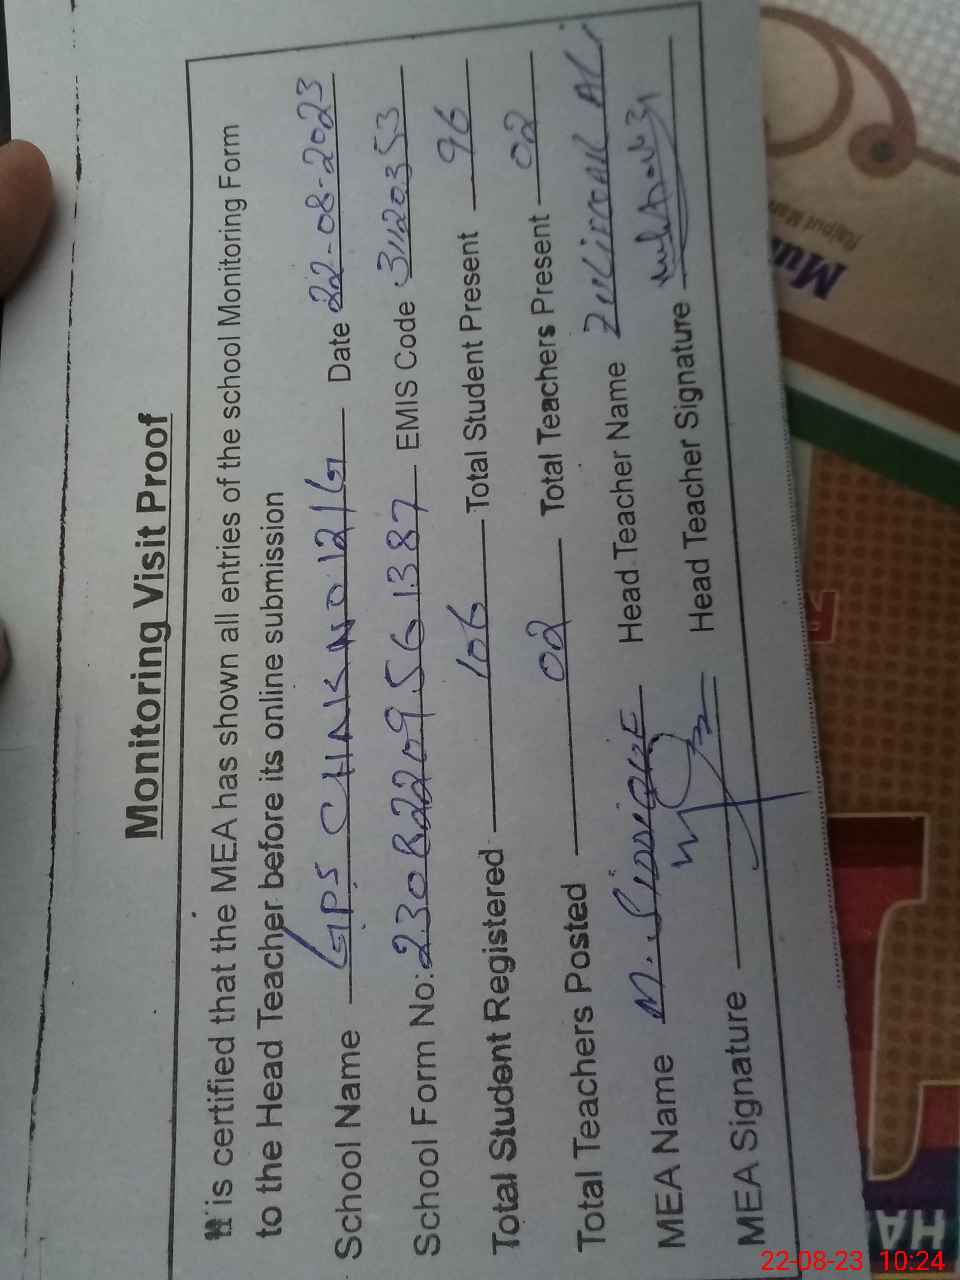 Monitoring Visit Proof
It is certified that the MEA has shown all entries of the school Monitoring Form
to the Head Teacher before its online submission
School Name GPS CHAK NO 12/G Date 22-08-2023
School Form No: 230R2209561387 EMIS Code 31120353
Total Student Registered 106 Total Student Present 96
Total Teachers Posted 02 Total Teachers Present 02
MEA Name M. SIDDIQUE Head Teacher Name Zulifqar Ali
MEA Signature Head Teacher Signature
Mu
Rajput Mar
HA
R
22-08-23 10:24